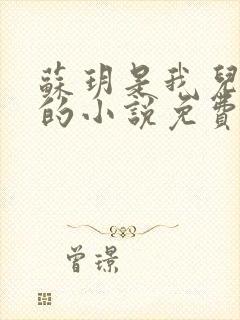 蘇玥是我兒
的小說免費
曾璟